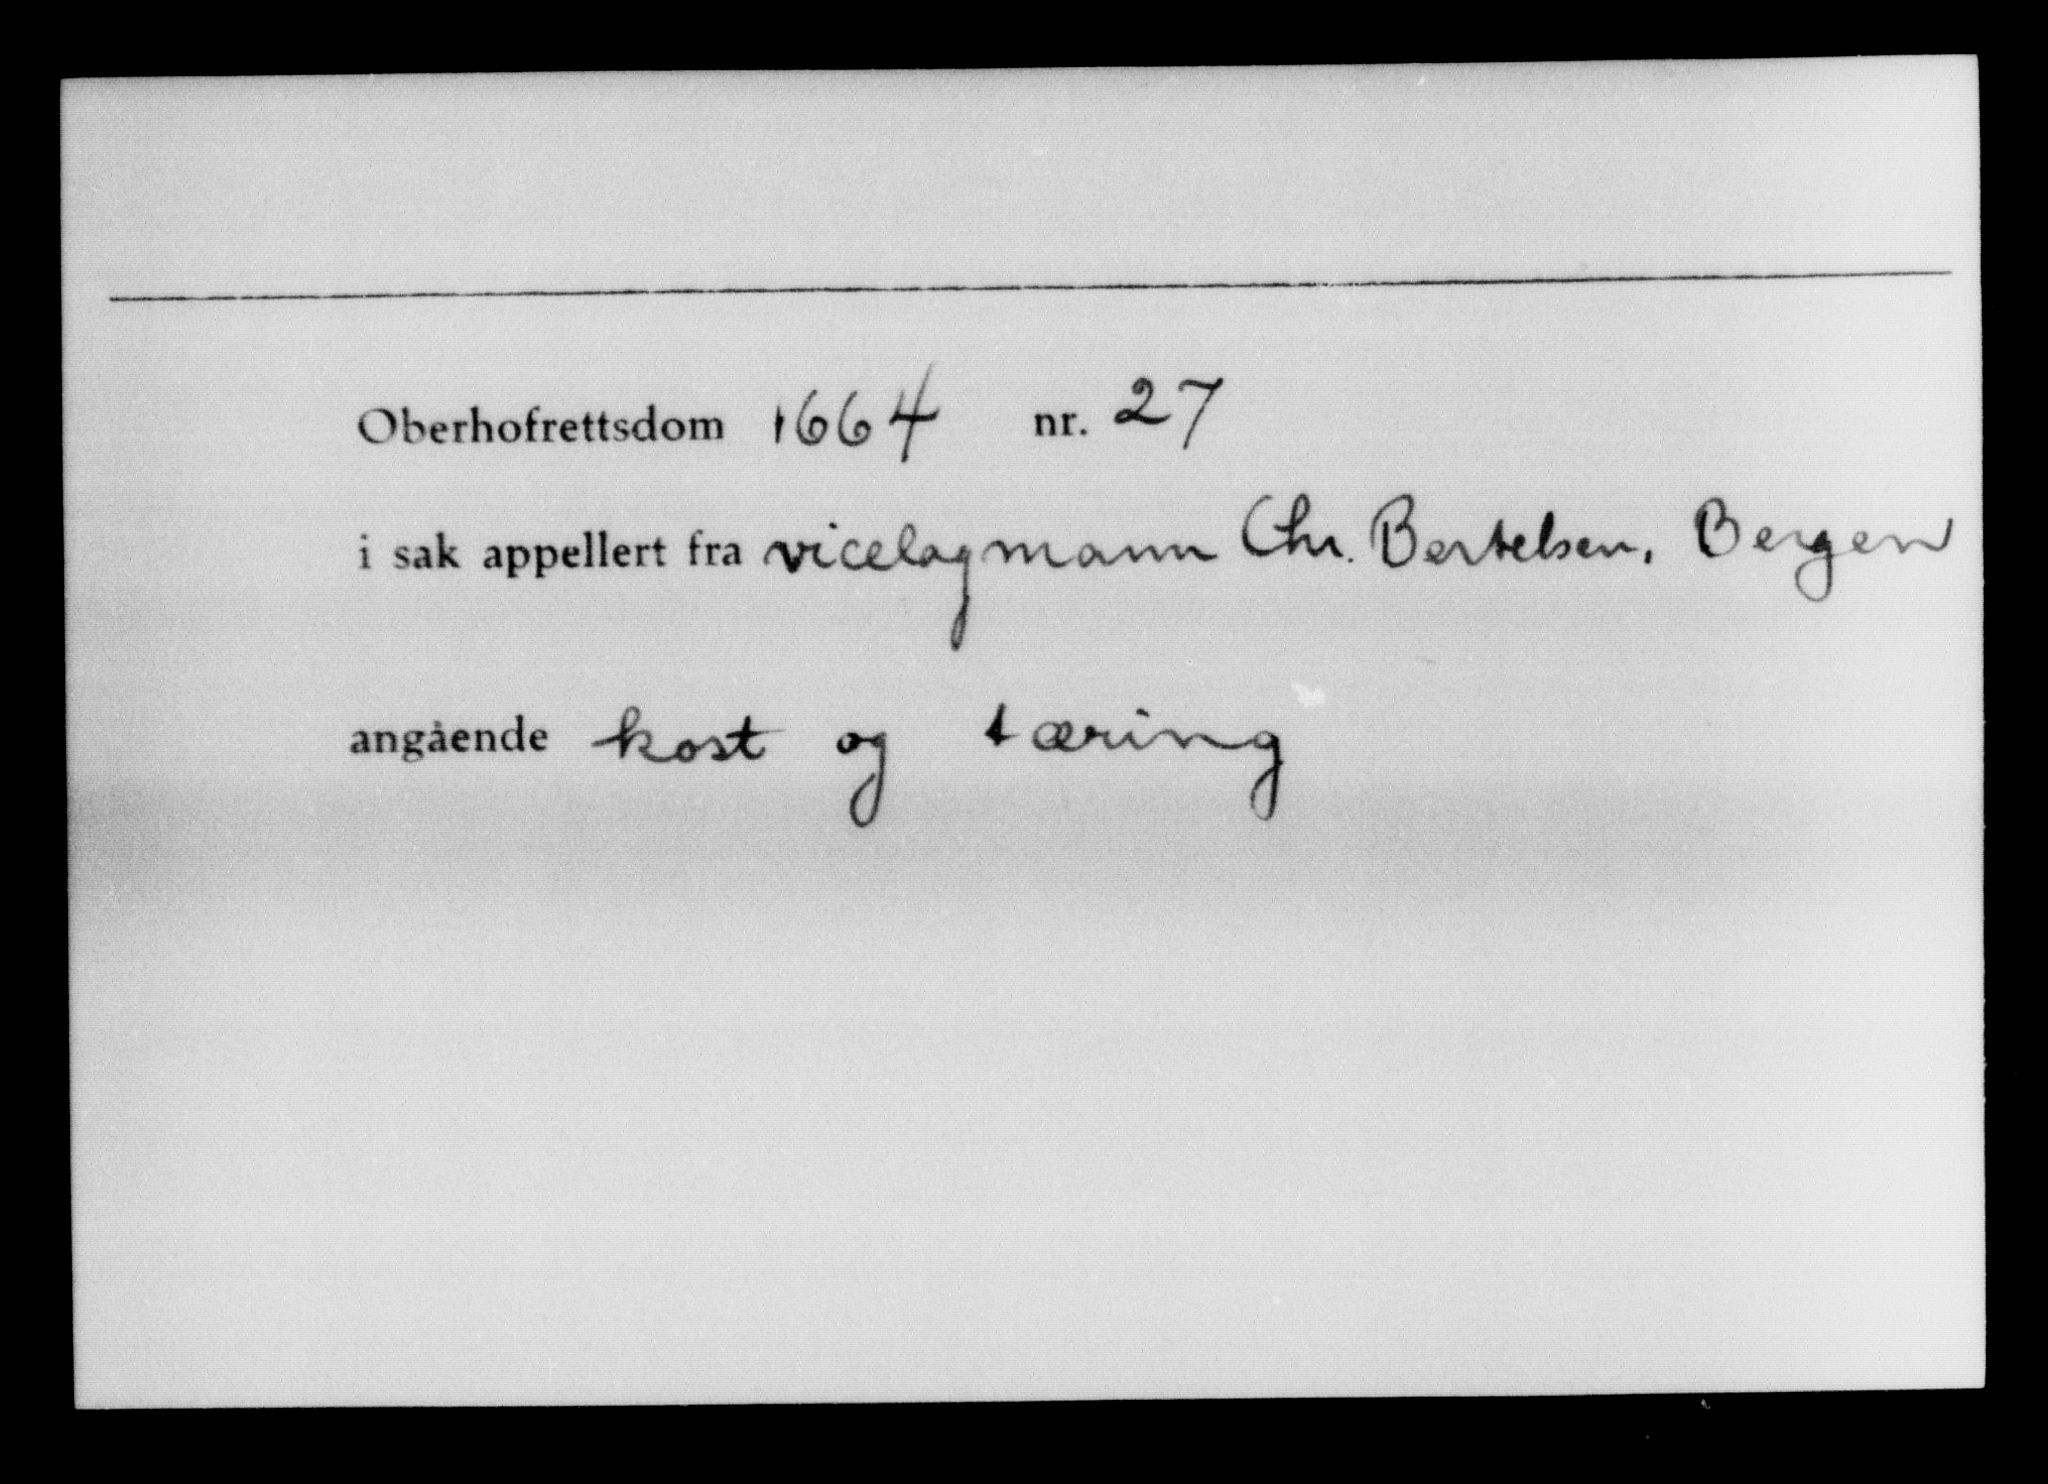 Oberhofrettsdom 1664 nr. 27
i sak appellert fra vicelagmann Chr. Bertelsen, Bergen
angående kost og tæring